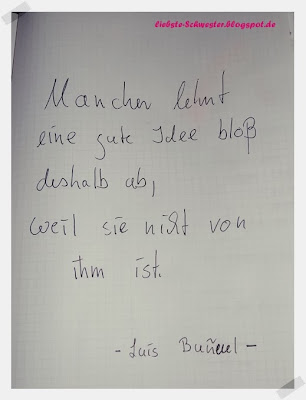 liebste-Schwester.blogspot.de
Mancher lehnt
eine gute Idee bloß
deshalb ab,
weil sie nicht von
ihm ist.
- Luis Buñuel -